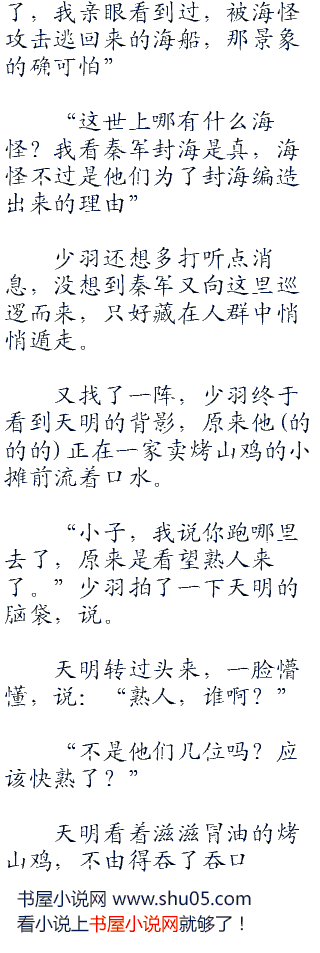 了，我亲眼看到过，被海怪
攻击逃回来的海船，那景象
的确可怕”
“这世上哪有什么海
怪？我看秦军封海是真，海
怪不过是他们为了封海编造
出来的理由”
少羽还想多打听点消
息，没想到秦军又向这里巡
逻而来，只好藏在人群中悄
悄遁走。
又找了一阵，少羽终于
看到天明的背影，原来他(的
的的)正在一家卖烤山鸡的小
摊前流着口水。
“小子，我说你跑哪里
去了，原来是看望熟人来
了。”少羽拍了一下天明的
脑袋，说。
天明转过头来，一脸懵
懂，说：“熟人，谁啊？”
“不是他们几位吗？应
该快熟了？”
天明看着滋滋冒油的烤
山鸡，不由得吞了吞口
书屋小说网 www.shu05.com
看小说上书屋小说网就够了！